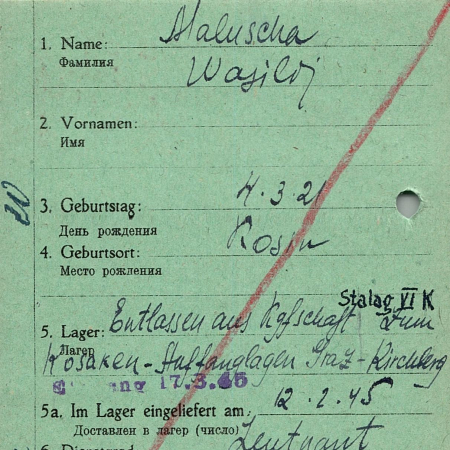 1. Name: Maluscha
Фамилия Wasilij
2. Vornamen:
Имя
3. Geburtstag: 4.3.21
День рождения
4. Geburtsort: Kosin
Место рождения
Stalag VI K
5. Lager: Entlassen aus Kgfschaft zum
Лагер Kosaken-Auffanglager Graz-Kirchberg
17.3.45
5a. Im Lager eingeliefert am: 12.2.45
Доставлен в лагер (число) Leutnant
6.